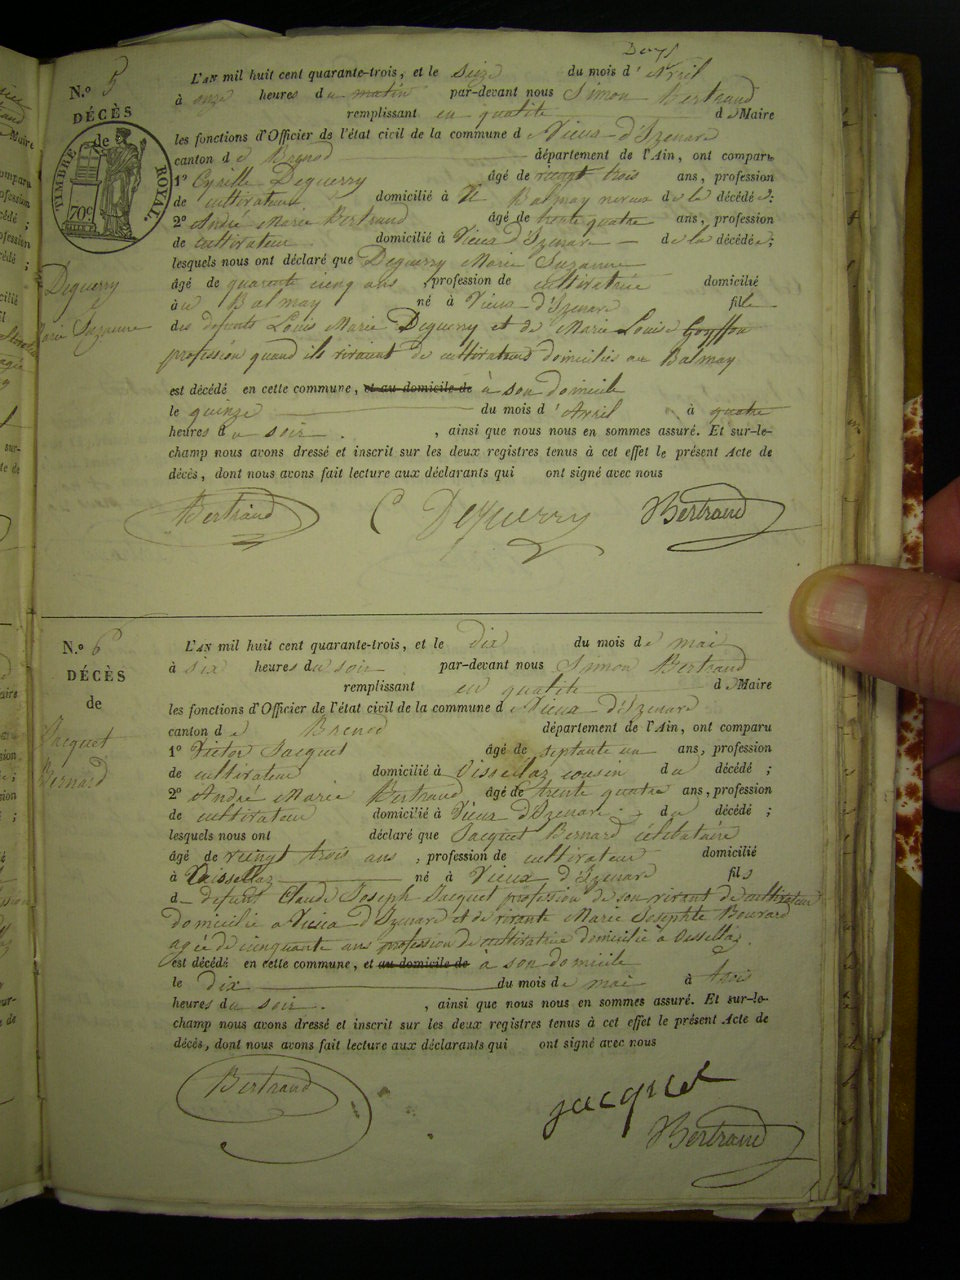 N.º 5
DÉCÈS
de
TIMBRE ROYAL.
70c
Deguerry
Marie Suzanne
L'AN mil huit cent quarante-trois, et le seize du mois d'Avril
à onze heures du matin par-devant nous Simon Bertrand
remplissant en qualité de Maire
les fonctions d'Officier de l'état civil de la commune de Vieux-d'Izenave
canton de Brenod département de l'Ain, ont comparu
1º Cyrille Deguerry âgé de vingt trois ans, profession
de cultivateur domicilié à Balmay neveu de la décédée
2º André Marie Bertrand âgé de trente quatre ans, profession
de cultivateur domicilié à Vieux d'Izenave de la décédée;
lesquels nous ont déclaré que Deguerry Marie Suzanne
âgé de quarante cinq ans, profession de cultivatrice domicilié
au Balmay né à Vieux-d'Izenave fille
des defunts Louis Marie Deguerry et de Marie Louise Goyffon
profession quand ils vivaient de cultivateurs domiciliés au Balmay
est décédé en cette commune, et au domicile de à son domicile
le quinze du mois d'Avril à quatre
heures du soir , ainsi que nous nous en sommes assuré. Et sur-le-
champ nous avons dressé et inscrit sur les deux registres tenus à cet effet le présent Acte de
décès, dont nous avons fait lecture aux déclarants qui ont signé avec nous
Bertrand C Deguerry Bertrand
N.º 6
DÉCÈS
de
Jacquet
Bernard
L'AN mil huit cent quarante-trois, et le dix du mois de mai
à six heures du soir par-devant nous Simon Bertrand
remplissant en qualité de Maire
les fonctions d'Officier de l'état civil de la commune de Vieux-d'Izenave
canton de Brenod département de l'Ain, ont comparu
1º Victor Jacquet âgé de septante un ans, profession
de cultivateur domicilié à Oissellaz cousin du décédé;
2º André Marie Bertrand âgé de trente quatre ans, profession
de cultivateur domicilié à Vieux d'Izenave du décédé;
lesquels nous ont déclaré que Jacquet Bernard célibataire
âgé de vingt trois ans, profession de cultivateur domicilié
à Oissellaz né à Vieux d'Izenave fils
de defunt Claude Joseph Jacquet profession de son vivant de cultivateur
domicilié à Vieux d'Izenave et de vivante Marie Josephte Bouvard
agée de cinquante ans profession de cultivatrice domicilié à Oissellaz.
est décédé en cette commune, et au domicile de à son domicile
le dix du mois de mai à trois
heures du soir. , ainsi que nous nous en sommes assuré. Et sur-le-
champ nous avons dressé et inscrit sur les deux registres tenus à cet effet le présent Acte de
décès, dont nous avons fait lecture aux déclarants qui ont signé avec nous
Bertrand jacquet
Bertrand